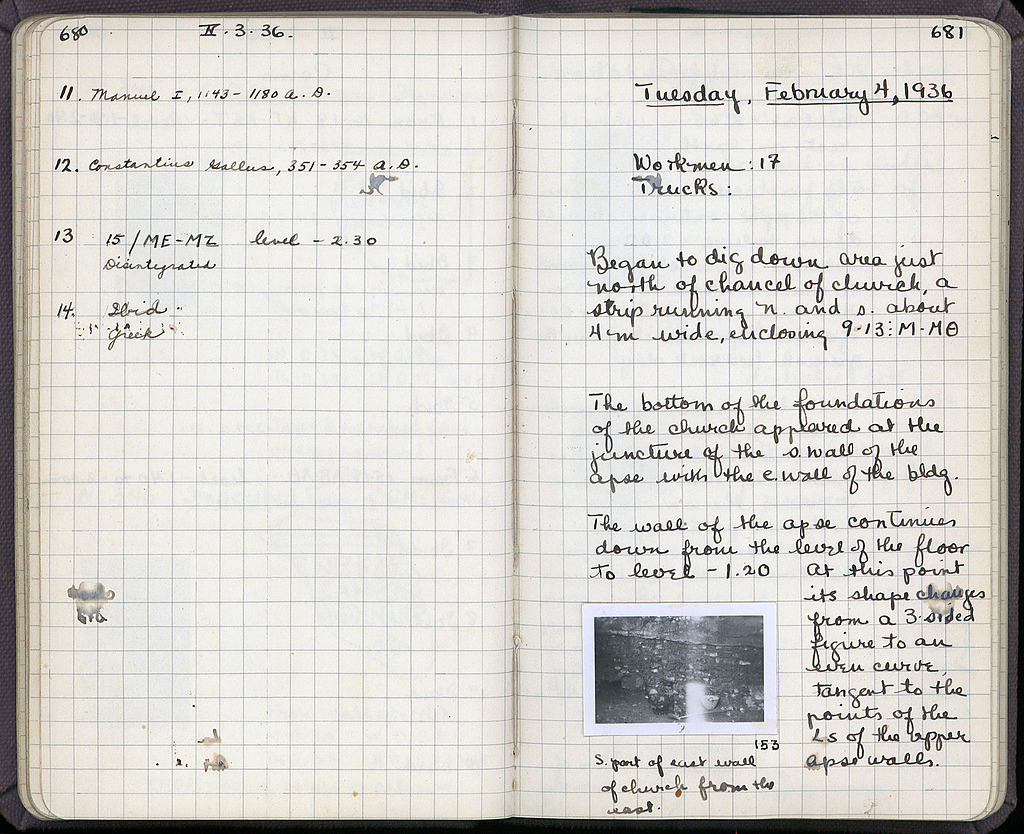 680
II.3.36.
11. Manuel I, 1143-1180 A.D.
12. Constantius Gallus, 351-354 A.D.
13 15/ME-MZ level -2.30
Disintegrated
14. Ibid "
Greek
681
Tuesday, February 4, 1936
Workmen: 17
Trucks:
Began to dig down area just
north of chancel of church, a
strip running n. and s. about
4 m wide, enclosing 9-13: M-MΘ
The bottom of the foundations
of the church appeared at the
juncture of the s. wall of the
apse with the e. wall of the bldg.
The wall of the apse continues
down from the level of the floor
to level -1.20 At this point
its shape changes
from a 3-sided
figure to an
even curve,
tangent to the
points of the
∠s of the upper
apse walls.
153
S. part of east wall
of church from the
east.